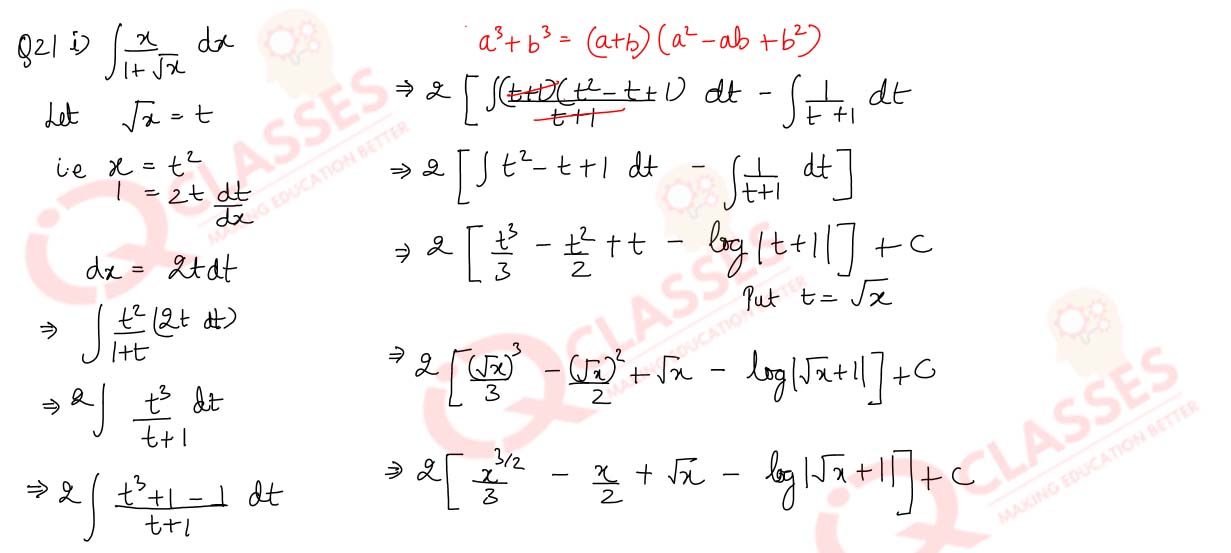 Q21 i) ∫ x/(1+√x) dx
Let √x = t
i.e x = t²
1 = 2t dt/dx
dx = 2t dt
⇒ ∫ t²/(1+t) (2t dt)
⇒ 2∫ t³/(t+1) dt
⇒ 2∫ (t³+1-1)/(t+1) dt
a³+b³ = (a+b)(a²-ab+b²)
⇒ 2 [∫ (t+1)(t²-t+1)/(t+1) dt - ∫ 1/(t+1) dt
⇒ 2 [∫ t²-t+1 dt - ∫ 1/(t+1) dt]
⇒ 2 [t³/3 - t²/2 + t - log|t+1|] + C
Put t = √x
⇒ 2 [(√x)³/3 - (√x)²/2 + √x - log|√x+1|] + C
⇒ 2 [x^(3/2)/3 - x/2 + √x - log|√x+1|] + C
IQ CLASSES
MAKING EDUCATION BETTER
IQ CLASSES
MAKING EDUCATION BETTER
IQ CLASSES
MAKING EDUCATION BETTER